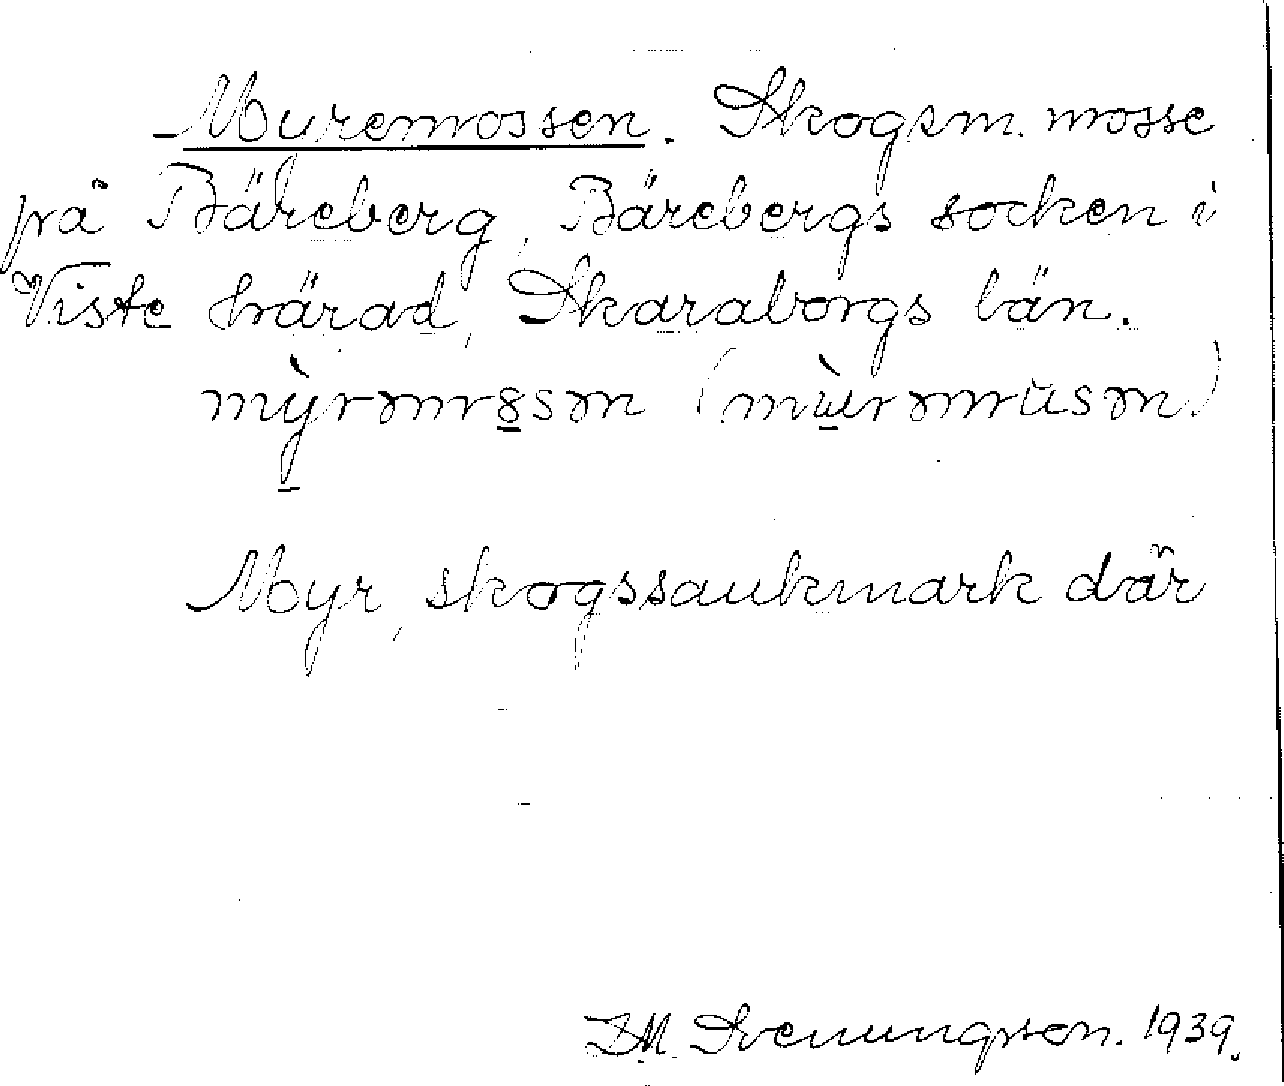 Myremossen. Skogsm. mosse
på Bäreberg, Bärebergs socken i
Viste härad, Skaraborgs län.
mỳrəmȣsən (mùrəmusən)
Myr, skogssankmark där
I.M. Svenungsson. 1939.